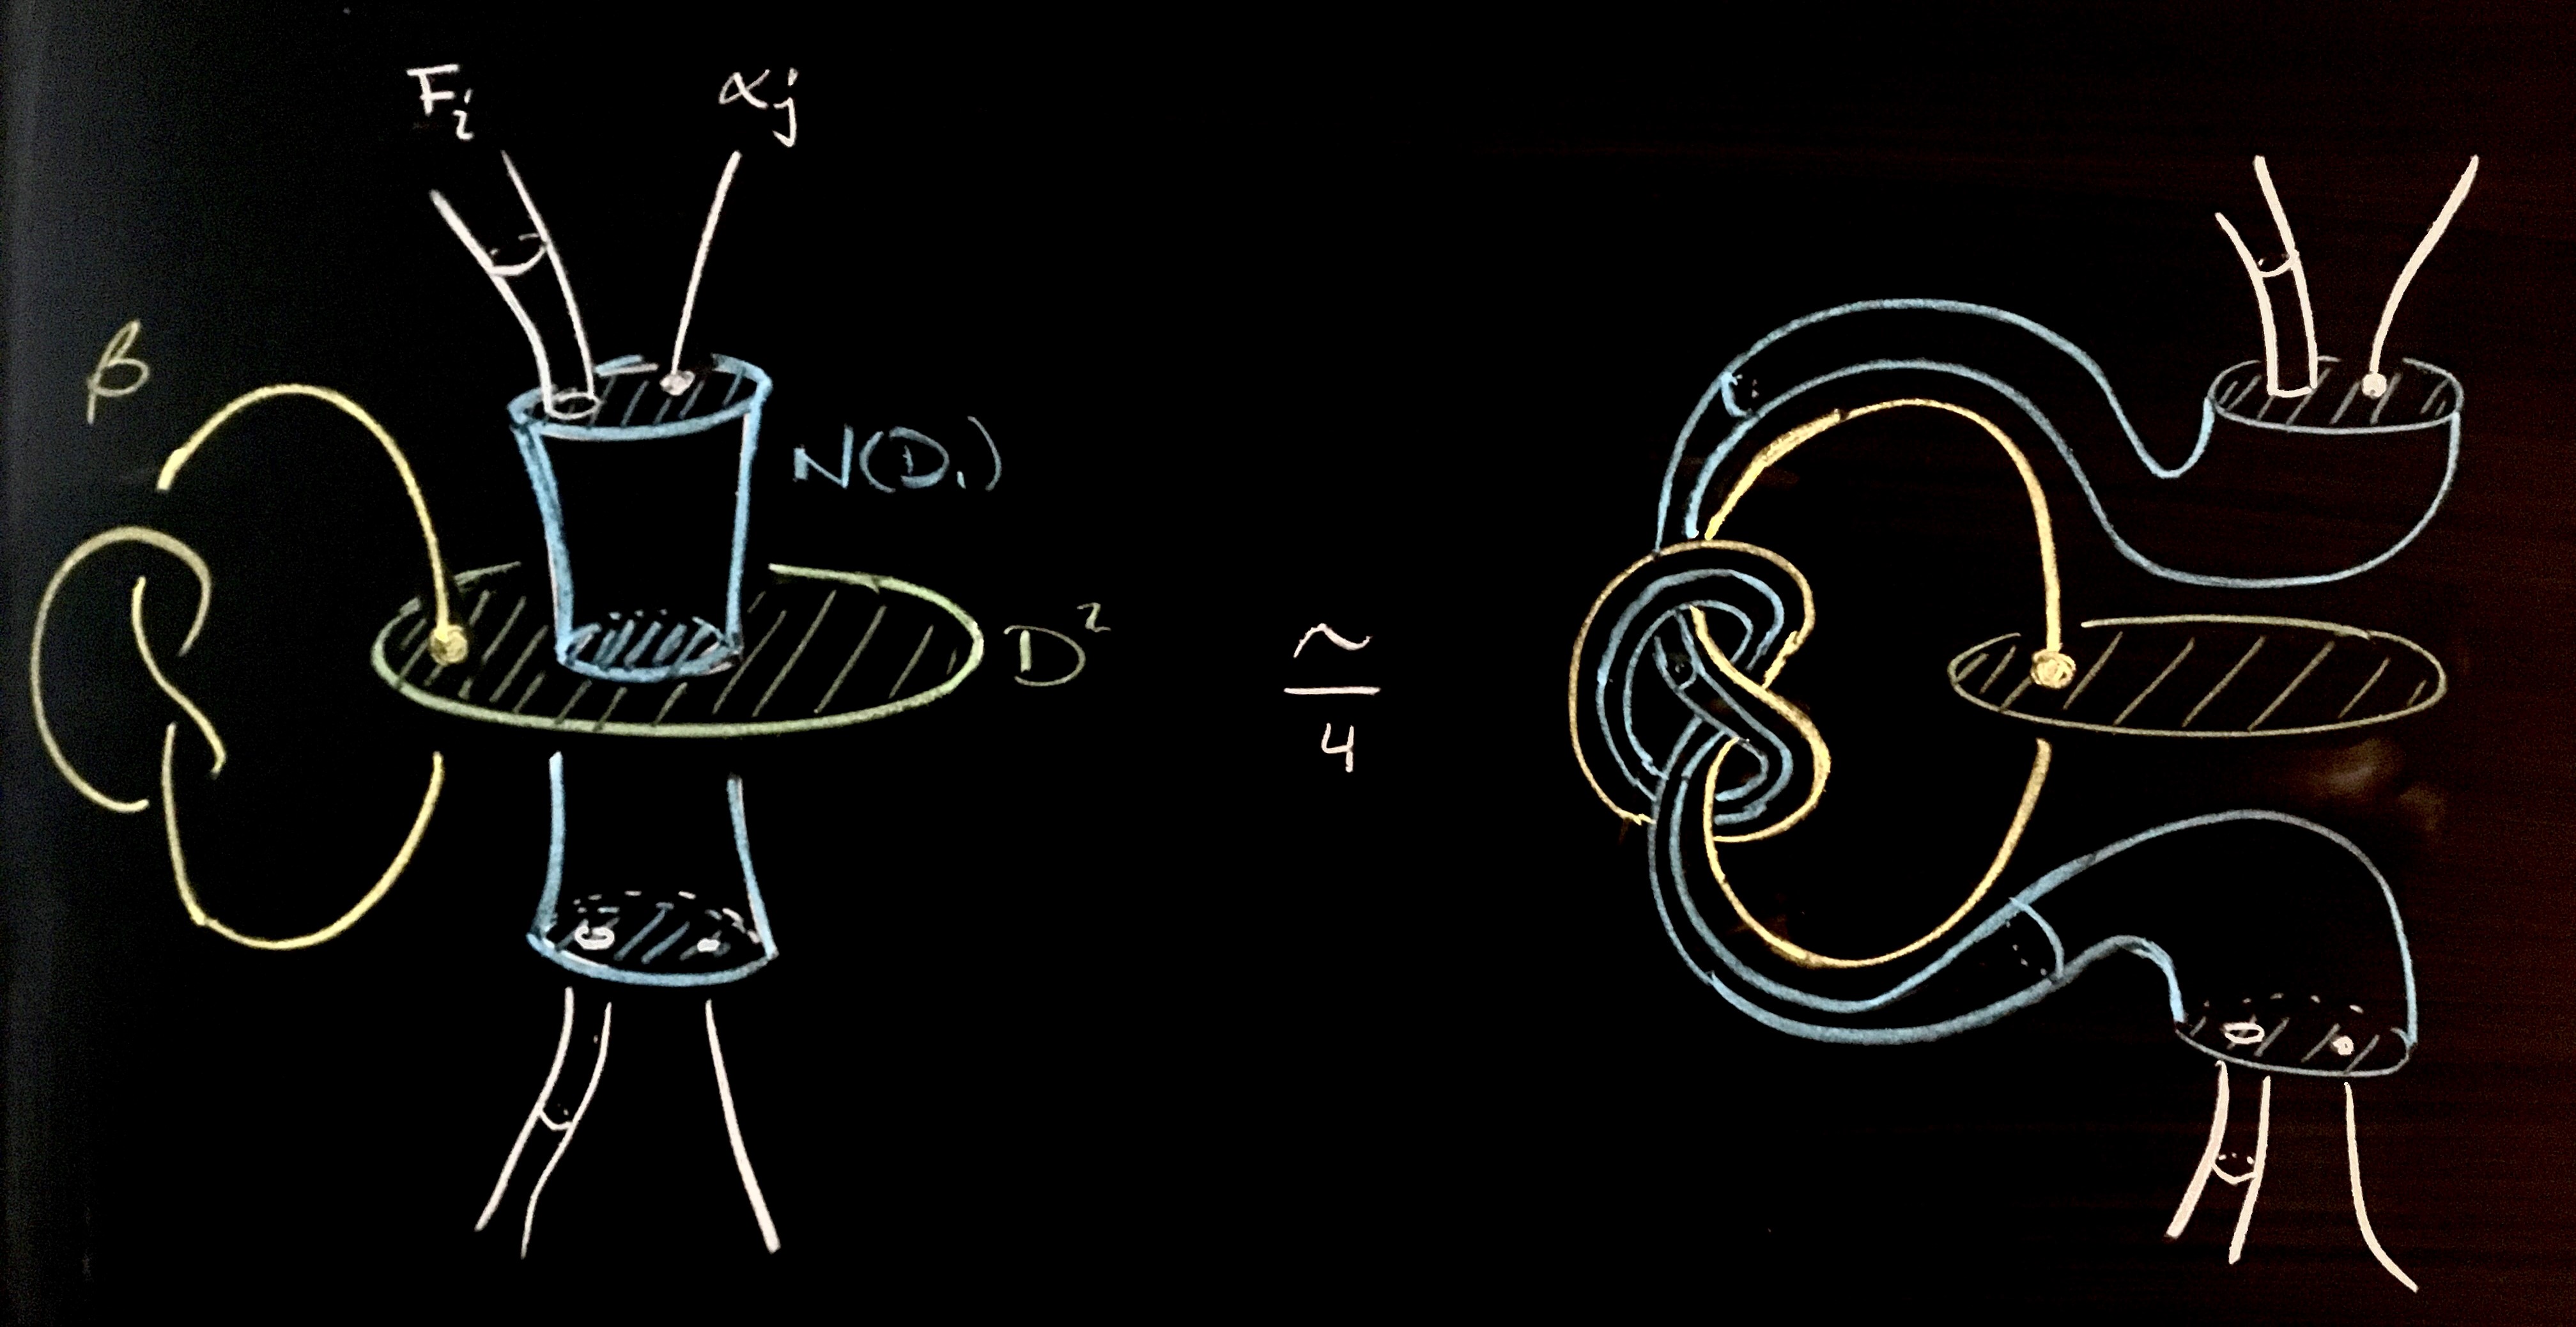 F_i
α_j
β
N(D_1)
D^2
≃
4